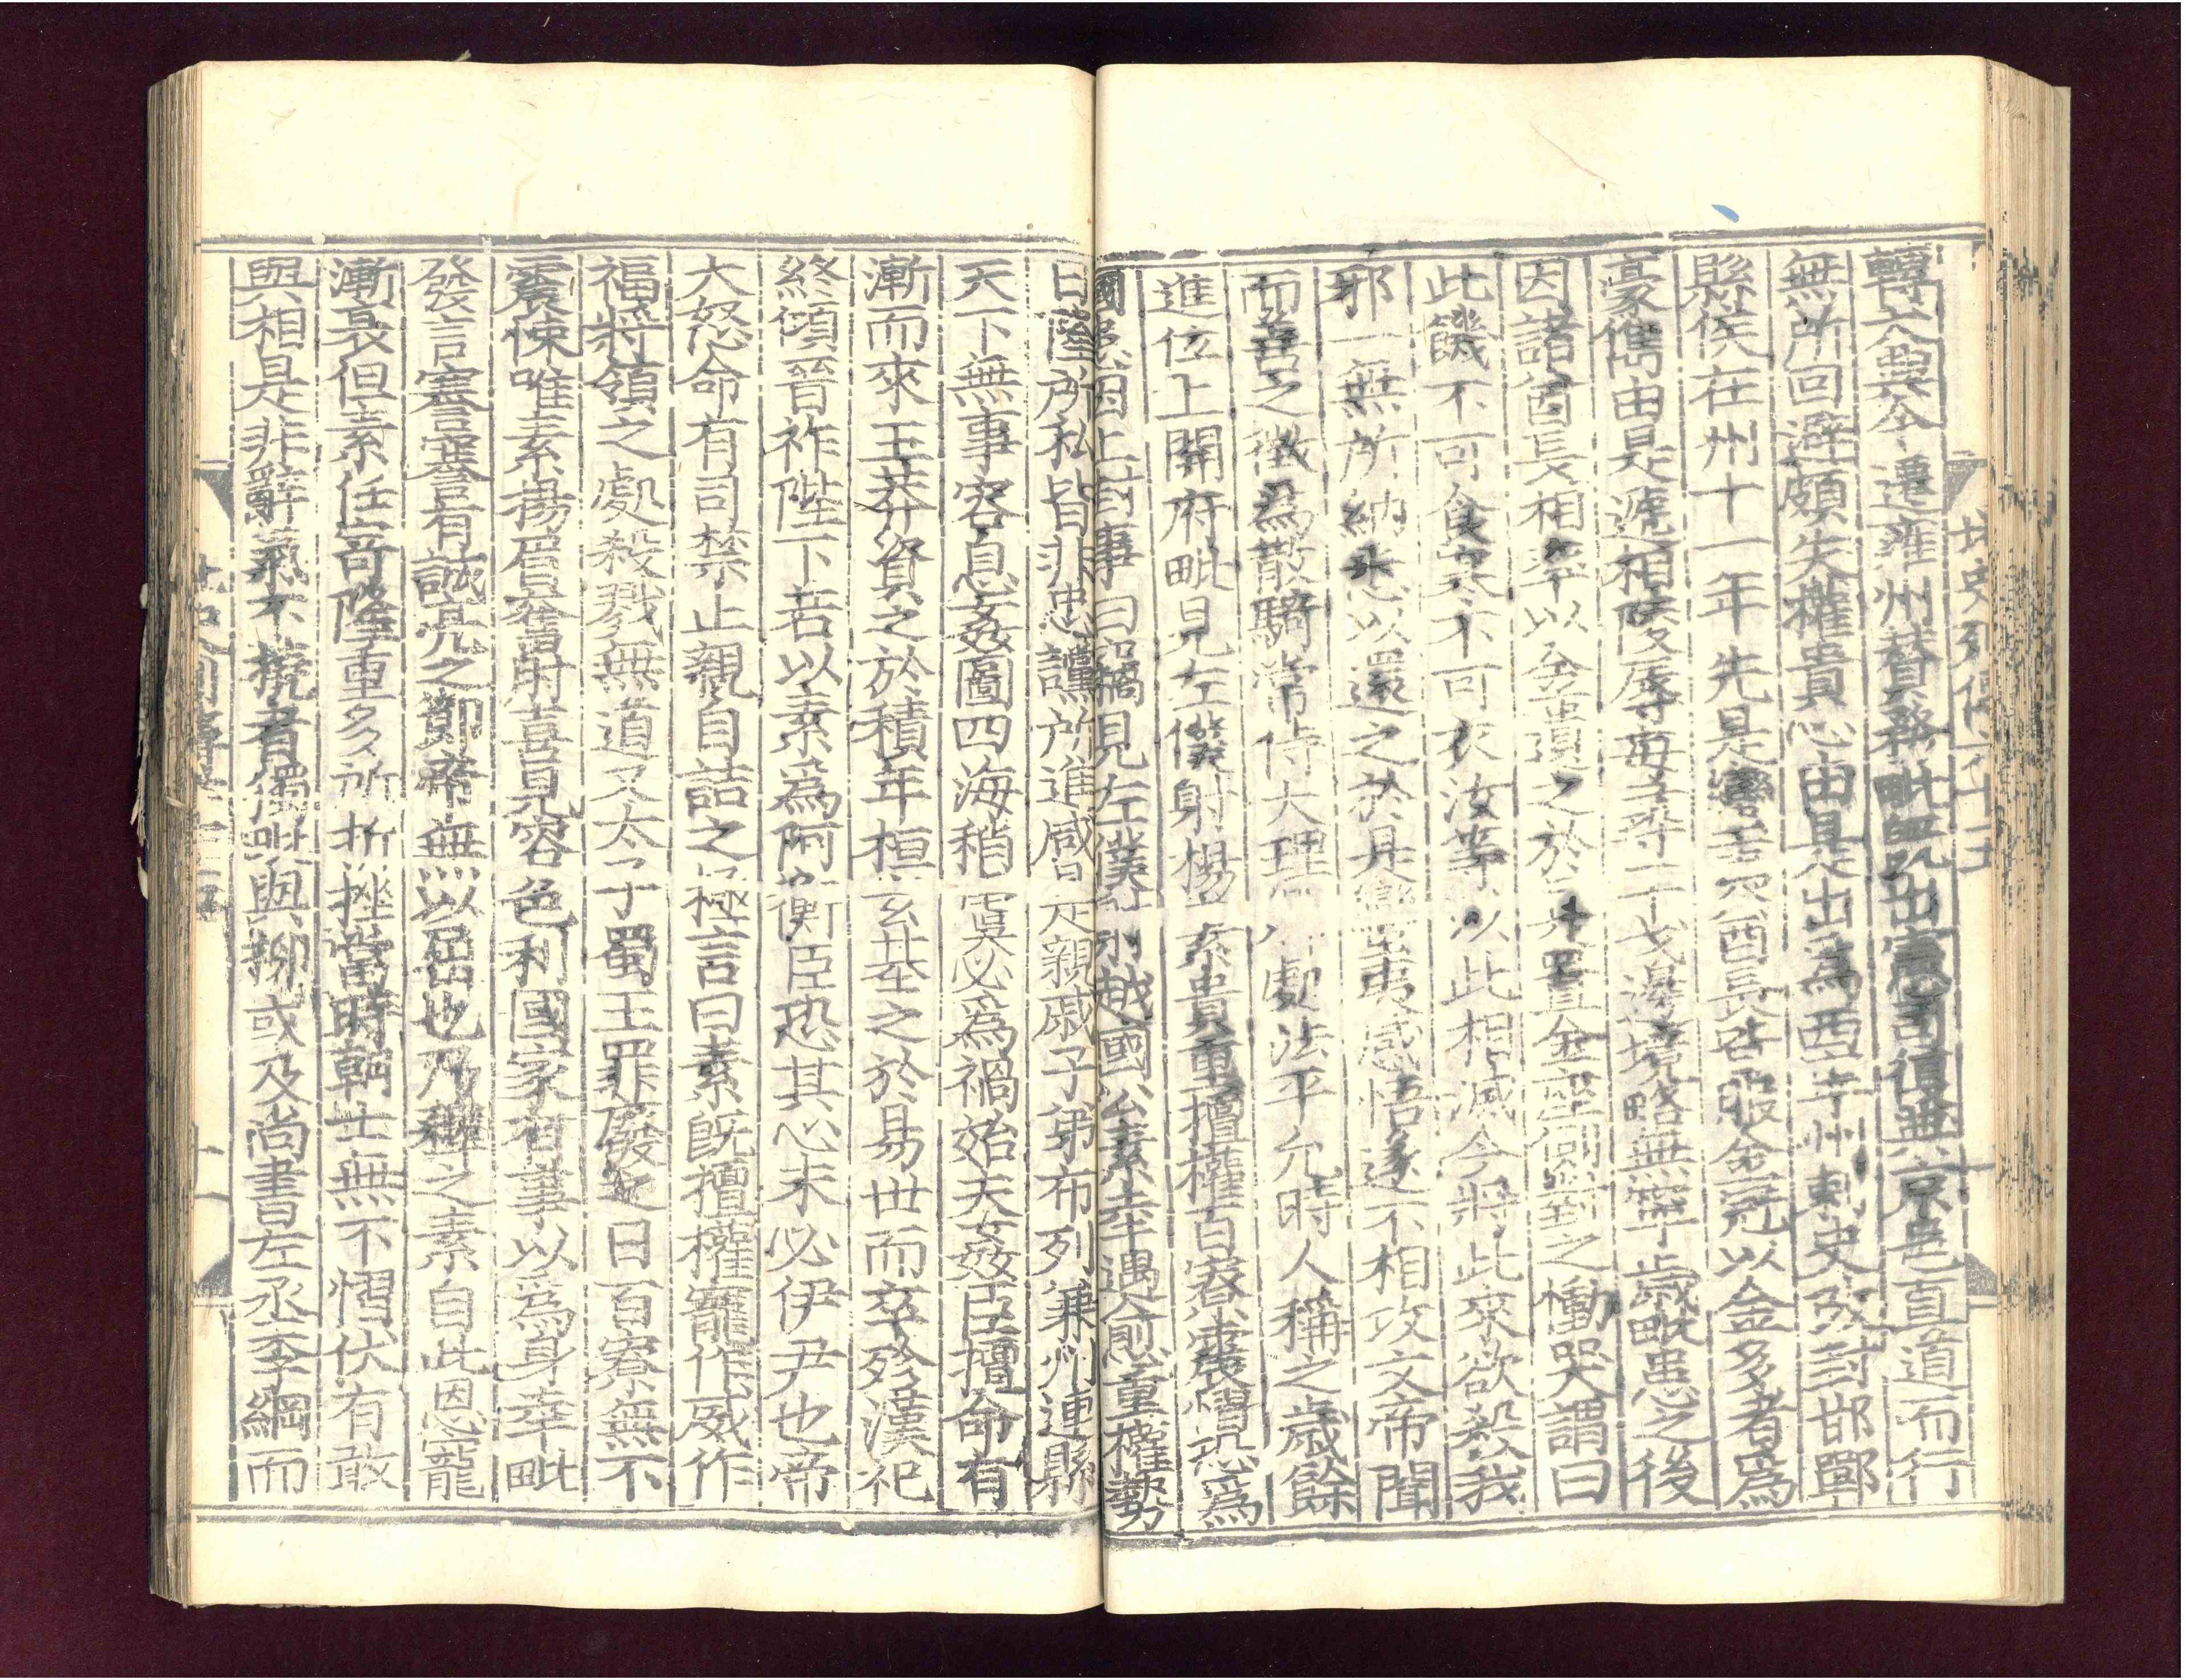 轉大興令遷雍州贊務毗既出憲司復典京邑直道而行
無所回避頗失權貴心由是出爲西寧州刺史改封邯鄲
縣侯在州十一年先是蠻夷酋長皆服金冠以金多者爲
豪儁由是遞相陵辱每尋干戈邊境略無寧歲毗患之後
因諸酋長相率以金遺之於是置金座側對之慟哭謂曰
此饑不可食寒不可衣汝等以此相滅今將此來欲殺我
邪一無所納悉以還之於是蠻夷感悟遂不相攻文帝聞
而善之徵爲散騎常侍大理 處法平允時人稱之歲餘
進位上開府毗見左僕射楊素貴重擅權百寮震慴恐爲
國患因上封事曰 竊見左僕射越國公素幸遇愈重權勢
日隆所私皆非忠讜所進咸是親戚子弟布列兼州連縣
天下無事容息姦圖四海稍虞必爲禍始夫姦臣擅命有
漸而來王莽資之於積年桓玄基之於易世而卒殄漢祀
終傾晉祚陛下若以素爲阿衡臣恐其心未必伊尹也帝
大怒命有司禁止親自詰之極言曰素既擅權寵作威作
福將領之處殺戮無道又太子蜀王罪廢之日百寮無不
震悚唯素揚眉奮肘喜見容色利國家有事以爲身幸毗
發言謇謇有誠亮之節帝無以屈也乃釋之素自此恩寵
漸衰但素任寄隆重多所折挫當時朝士無不慴伏有敢
與相是非辭氣不撓者獨毗與柳彧及尚書左丞李綱而
北史列傳六十五
十一